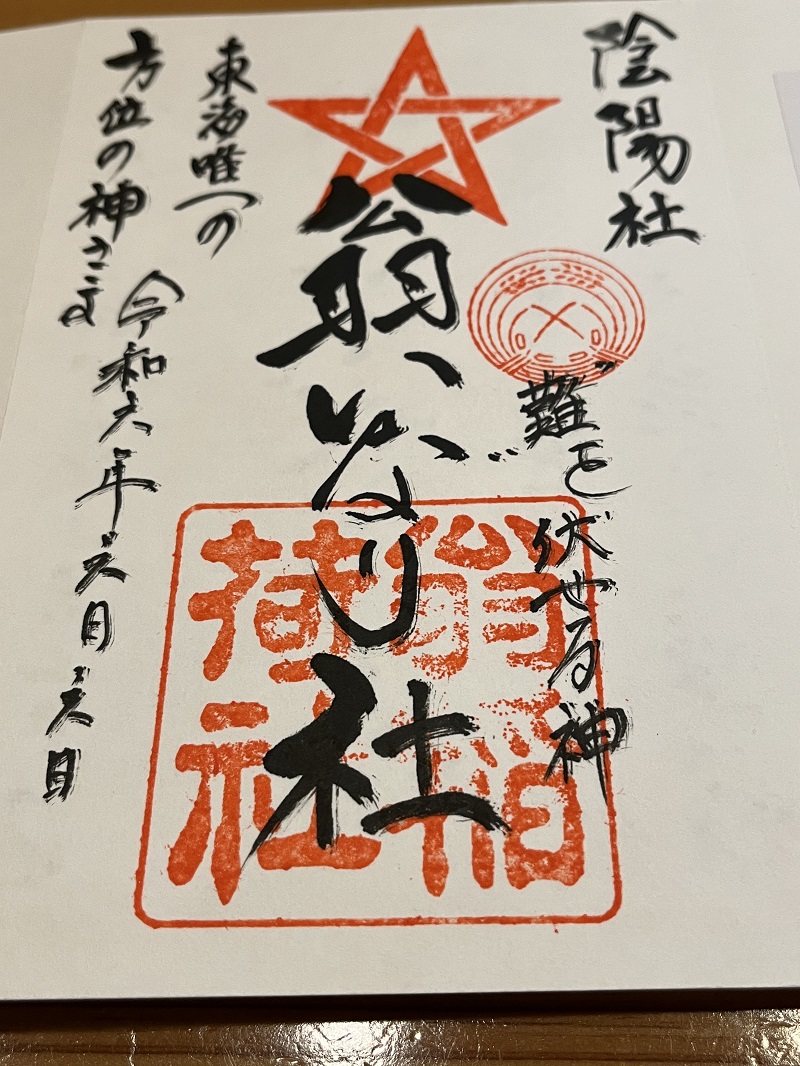 陰陽社
難を伏せる神
翁いなり社
翁稲
荷社
東海唯一の
方位の神さま
令和六年六月六日